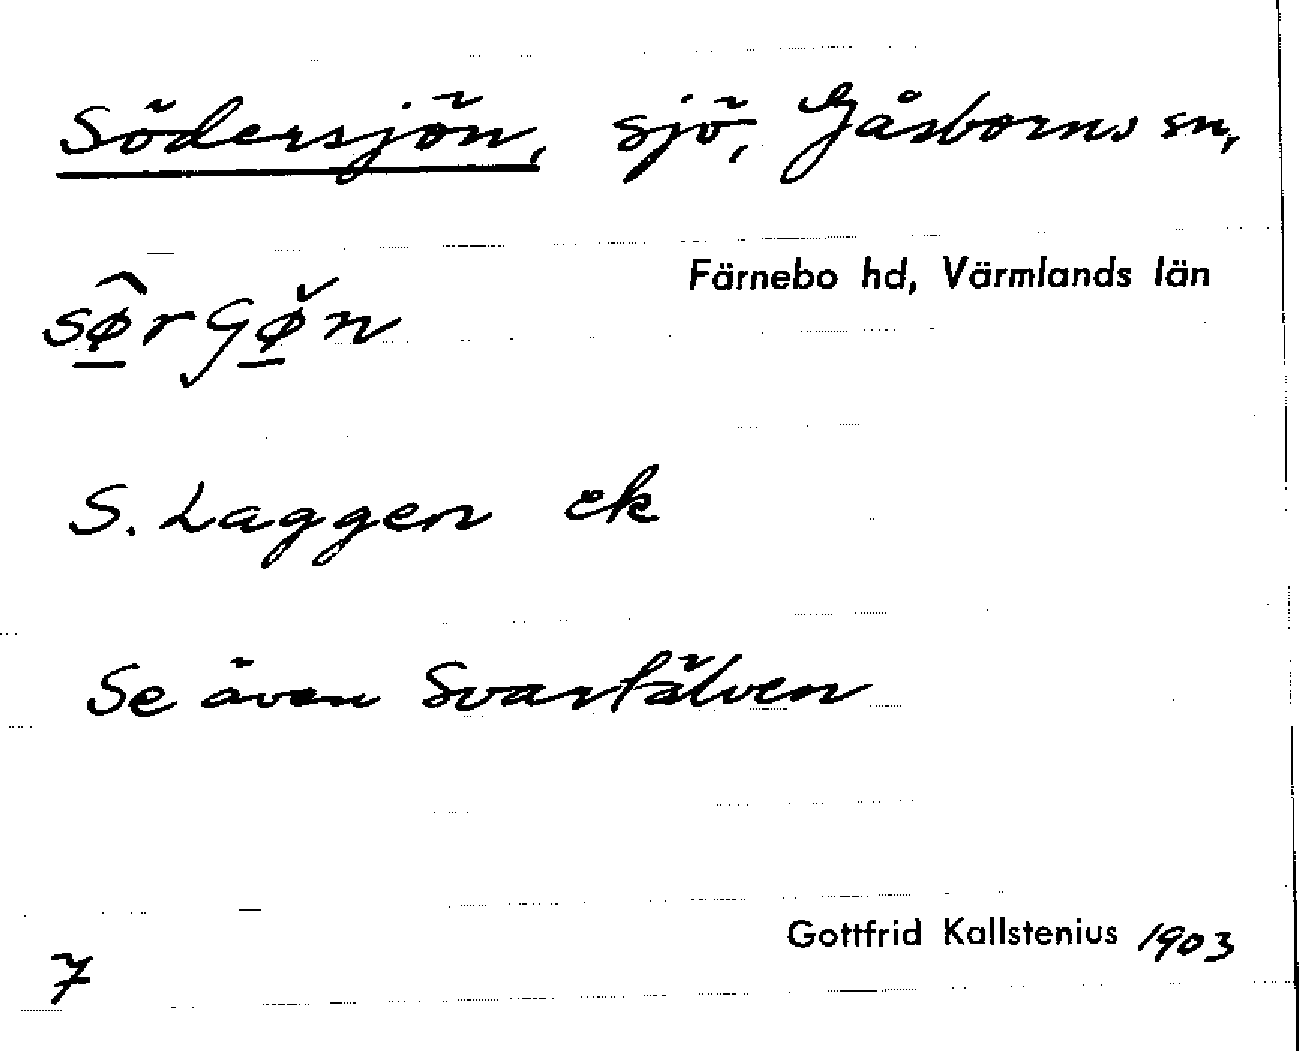 Södersjön, sjö, Gåsborns sn,
Färnebo hd, Värmlands län
sø̂rgø̌n
S. Laggen ek
Se även Svartälven
Gottfrid Kallstenius 1903
7